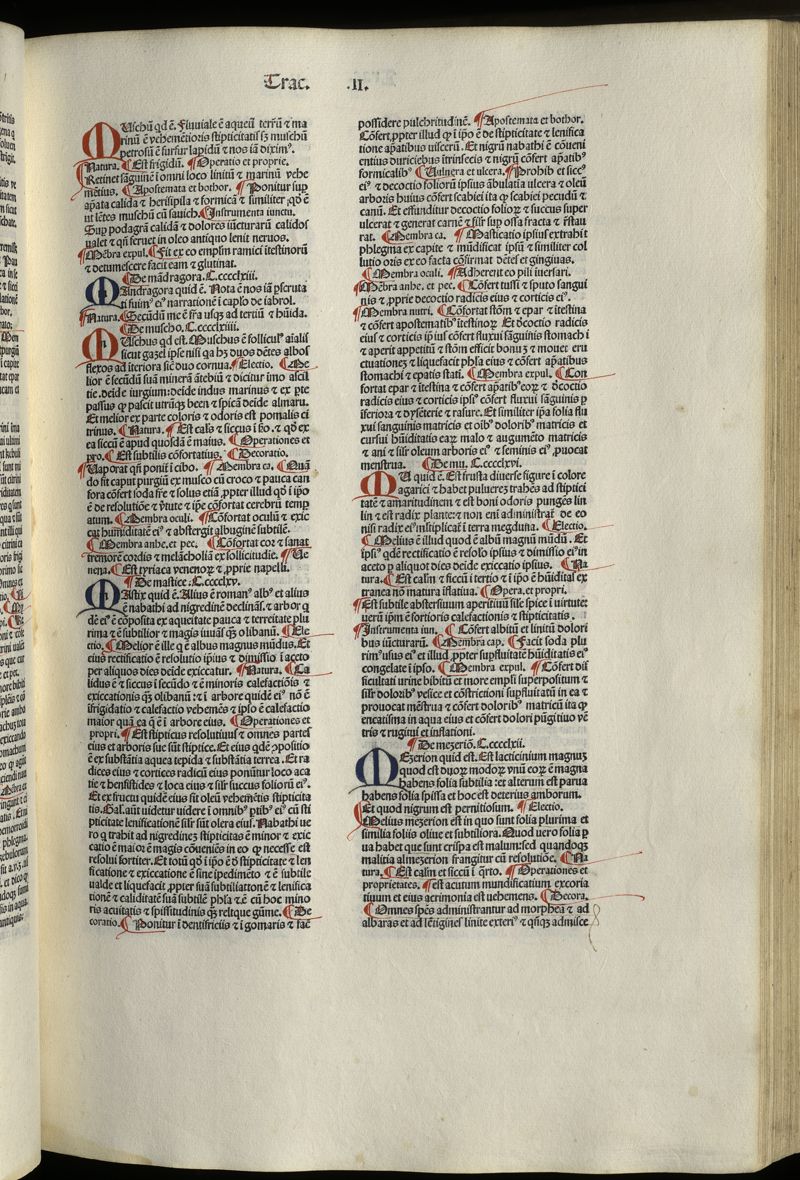 Trac. .II.
MUschũ qđ ẽ. Fluuiale ẽ aqueũ terr̃ũ ⁊ ma
rinũ ẽ vehemẽtioris stipticitatis sꝫ muschũ
petrosũ ẽ furfur lapidũ ⁊ nos iã diximꝰ.
¶Natura. ¶Est frigidũ. ¶Operatio et proprie.
Retinet sãguinẽ ĩ omni loco linitũ ⁊ marinũ vehe
mẽtius. ¶Apostemata et bothor. ¶Ponitur sup
ap̃ata calida ⁊ herisipila ⁊ formicã ⁊ similiter
muschũ cũ sauich. ¶Instrumenta iunctu.
Sup podagrã calidã ⁊ dolores iũcturarũ calidos
ualet ⁊ qñ feruet in oleo antiquo lenit neruos.
¶Mẽbra expul. ¶Fit ex eo emplm̃ ramici ĩtestinorũ
⁊ detumescere facit eam ⁊ glutinat.
¶De mãdragora. C.cccclxiii.
MAndragora quid ẽ. Nota ẽ nos iã
fuimꝰ eiꝰ narrationẽ ĩ caplo de iabrol.
¶Natura. ¶Secũdũ me ẽ fr̃a usqꝫ ad tertiũ ⁊ hũida.
¶De muscho. C.ccccclxiiii.
MUschus qđ est. Muschus ẽ folliculꝰ aĩalis
sicut gazel ipse nisi qa hꝫ duos dẽtes albos
flexos ad ĩteriora sic̃ duo cornua. ¶Electio. ¶Me
lior ẽ secũdũ suã minerã
tie. deide iurgium: deide indus marinus ⁊ ex p̱te
passuũ qꝫ pascit utrũqꝫ been ⁊ spicã deide almaru.
Et melior ex parte coloris ⁊ odoris est pomalis ci
trinus. ¶Natura. ¶Est cals ⁊ siccus ĩ ÷o. ⁊ qđ ex
ea siccũ ẽ apud quosdã ẽ maius. ¶Operationes et
pro. ¶Est subtilis cõfortatiuus. ¶Decoratio.
¶Uaporat qñ ponit̃ ĩ cibo. ¶Membra ca. ¶Quã
do fit caput purgiũ ex musco cũ croco ⁊ pauca can
fora cõfert soda fre ⁊ solus etiã ꝓpter illud qđ ĩ ip̃o
ẽ de resolutiõe ⁊ v̾tute ⁊ ip̃e cõfortat cerebrũ temp
atum. ¶Membra oculi. ¶Cõfortat oculũ ⁊ exic
cat humiditatẽ eiꝰ ⁊ abstergit albuginẽ subtilẽ.
¶Membra anhe. et pec. ¶Cõfortat cor ⁊ sanat
tremorẽ cordis ⁊ melãcholiã ex sollicitudie. ¶Ue
nena. ¶Est tyriaca venenoꝝ ⁊ ꝓprie napelli.
¶De mastice. C.ccccclxv.
MAstix quid ẽ. Alius ẽ romanꝰ albꝰ et alius
ẽ nabathi ad nigredinẽ declinãs. ⁊ arbor q
dẽ eiꝰ ẽ cõposita ex aqueitate pauca ⁊ terreitate plu
rima ⁊ ẽ subtilior ⁊ magis iuuãs qꝫ olibanũ. ¶Ele
ctio. ¶Melior ẽ ille q̃ ẽ albus magnus mũdus. Et
eius rectificatio ẽ resolutio ip̃ius ⁊ dimissio ĩ aceto
per aliquos dies deide exiccatur. ¶Natura. ¶Ca
lidus ẽ ⁊ siccus ĩ secũdo ⁊ ẽ minoris calefactiõis ⁊
exiccationis qꝫ olibanũ :⁊ ĩ arbore quidẽ eiꝰ nõ ẽ
ĩfrigidatio ⁊ calefactio vehemẽs ⁊ ip̃o ẽ calefactio
maior quã ea q̃ ẽ ĩ arbore eius. ¶Operationes et
propri. ¶Est stipticus resolutiuus ⁊ omnes partes
eius et arboris sue sũt stiptice. Et eius qdẽ ꝓpositio
ẽ ex substãtia aquea tepida ⁊ substãtia terrea. Et ra
dices eius ⁊ cortices radicũ eius ponũtur loco aca
tie ⁊ henfistides ⁊ loca eius ⁊ silr̃ succus foliorũ eiꝰ.
Et ex fructu quidẽ eius fit oleũ vehemẽtis stipticita
tis. Gal. aũt videtur uidere ĩ omnibꝰ ptibꝰ eiꝰ cũ sti
pticitate lenificationẽ silr̃ sũt olera eius. Nabathi ue
ro q̱ trahit ad nigredineꝫ stipticitas ẽ minor ⁊ exic
catio ẽ maior ⁊ magis cõueniẽs in eo qꝫ necesse est
resolui fortiter. Et totũ qđ ĩ ip̃o ẽ đ stipticitate ⁊ len
ficatione ⁊ exiccatione ẽ sine ĩpedimẽto ⁊ ẽ subtile
ualde et liquefacit ꝓpter suã subtiliationẽ ⁊ lenifica
tionẽ ⁊ caliditatẽ suã subtilẽ phľa ⁊ ẽ cũ hoc mino
ris acuitatis ⁊ spissitudinis qꝫ relique gũme. ¶De
coratio. ¶Ponitur ĩ dentifriciis ⁊ ĩ gomaris ⁊ fac̃
possidere pulchritudinẽ. ¶Apostemata et bothor.
Cõfert ꝓpter illud qꝫ ĩ ip̃o ẽ de stipticitate ⁊ lenifica
tione ap̃atibus ulcerũ. Et nigrũ nabathi ẽ cõueni
entius duriciebus ĩtrinsecis ⁊ nigrũ cõfert ap̃atibꝰ
formicalibꝰ ¶Uulnera et ulcera. ¶Prohib et siccꝰ
eiꝰ ⁊ decoctio foliorũ ipsius ãbulatia ulcera ⁊ oleũ
arboris huius cõfert scabiei ita qꝫ scabiei pecudũ ⁊
canũ. Et effunditur decoctio folioꝝ ⁊ succus super
ulcerat ⁊ generat carnẽ ⁊ silr̃ sup ossa fracta ⁊ r̃staũ
rat. ¶Membra ca. ¶Masticatio ipsius extrahit
phlegma ex capite ⁊ mũdificat ipsũ ⁊ similiter col
lutio oris ex eo facta cõfirmat dẽtes et gingiuas.
¶Membra oculi. ¶Adherent eo pili iuersari.
¶Mẽbra anhe. et pec. ¶Cõfert tussi ⁊ sputo sangui
nis ⁊ ꝓprie decoctio radicis eius ⁊ corticis eiꝰ.
¶Membra nutri. ¶Cõfortat stõm ⁊ epar ⁊ ĩtestina
⁊ cõfert apostematibꝰ ĩtestinoꝝ Et đcoctio radicis
eius ⁊ corticis ip̃ius cõfert fluxui sãguinis stomachi
⁊ aperit appetitũ ⁊ stõm efficit bonuꝫ ⁊ mouet eru
ctuationeꝫ ⁊ liquefacit phľa eius ⁊ cõfert ap̃atibus
stomachi ⁊ epatis stati. ¶Membra expul. ¶Con
fortat epar ⁊ ĩtestina ⁊ cõfert ap̃atibꝰ eoꝝ ⁊ đcoctio
radicis eius ⁊ corticis ipsiꝰ cõfert fluxui sãguinis p̱
ĩferiora ⁊ dysẽterie ⁊ rasure. Et similiter ip̃a folia flu
xui sanguinis matricis et oĩbꝰ doloribꝰ matricis et
cursui hũiditatis eaꝝ malo ⁊ augumẽto matricis
⁊ ani ⁊ silr̃ oleum arboris eiꝰ ⁊ seminis eiꝰ ꝓuocat
menstrua. ¶De mu. C.ccccclxvi.
MU quid ẽ. Est frusta diuerse figure ĩ colore
agarici ⁊ habet puluereꝫ trahẽs ad stiptici
tatẽ ⁊ amaritudinem ⁊ est boni odoris pungẽs lin
guã ⁊ est radix plante: ⁊ non eni administrat̃ de eo
nisi radix eiꝰ multiplicat̃ ĩ terra megduna. ¶Electio.
¶Melius ẽ illud quod ẽ albũ magnũ mũdũ. Et
ipsiꝰ qdẽ rectificatio ẽ resolo ipsius ⁊ dimissio eiꝰ in
aceto p aliquot dies deide exiccatio ipsius. ¶Na
tura. ¶Est calm̃ ⁊ siccũ ĩ tertio ⁊ ĩ ip̃o ẽ hũidital ex
tranea nõ matura ĩflatiua. ¶Opera. et propri.
¶Est subtile abstersiuum aperitiuũ sil̃e spice ĩ uirtute:
uerũ ip̃m ẽ fortioris calefactionis ⁊ stipticitatis.
¶Instrumenta iun. ¶Cõfert albitũ et linitũ dolori
bus iũcturarũ. ¶Membra cap. ¶Facit soda plu
rimꝰ usus eiꝰ et illud ꝓpter supfluitatẽ hũiditatis eiꝰ
congelate ĩ ipso. ¶Membra expul. ¶Cõfert dif
ficultati urine bibitũ et more emplĩ superpositum ⁊
silr̃ doloribꝰ vesice et cõstrictioni supfluitatũ in ea ⁊
prouocat mẽstrua ⁊ cõfert doloribꝰ matricũ ita qꝫ
encatisma in aqua eius et cõfert dolori pũgitiuo vẽ
tris ⁊ rugitui et inflationi.
¶De mezeriõ. C.ccccclxii.
MEzerion quid est. Est lacticinium magnuꝫ
quod est duoꝝ modoꝝ vnũ eoꝝ ẽ magna
habens folia subtilia :et alterum est parua
habens folia spissa et hoc est deterius amborum.
Et quod nigrum est pernitiosum. ¶Electio.
¶Melius mezerion est in quo sunt folia plurima et
similia foliis oliue et subtiliora. Quod uero folia p
ua habet que sunt crispa est malum: sed quandoqꝫ
malitia almezerion frangitur cũ resolutiõe. ¶Na
tura. ¶Est calm̃ et siccũ ĩ q̃rto. ¶Operationes et
proprietates. ¶Est acutum mundificatiuum excoria
tiuum et eius acrimonia est uehemens. ¶Decora.
¶Omnes sp̃es administrantur ad morpheã ⁊ ad
albaras et ad lẽtigines linite exteriꝰ ⁊ qñqꝫ admisce